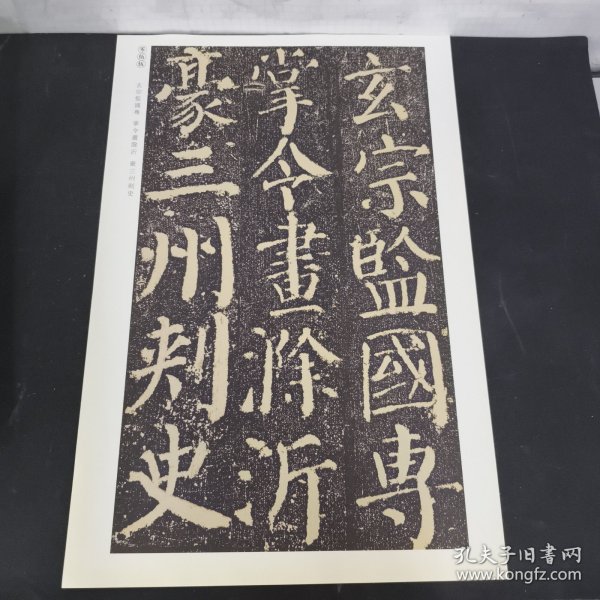 玄宗監國專
掌令畫滁沂
豪三州刾史
玄宗監國專 掌令畫滁沂 豪三州刺史
孔夫子旧書网
www.kongfz.com